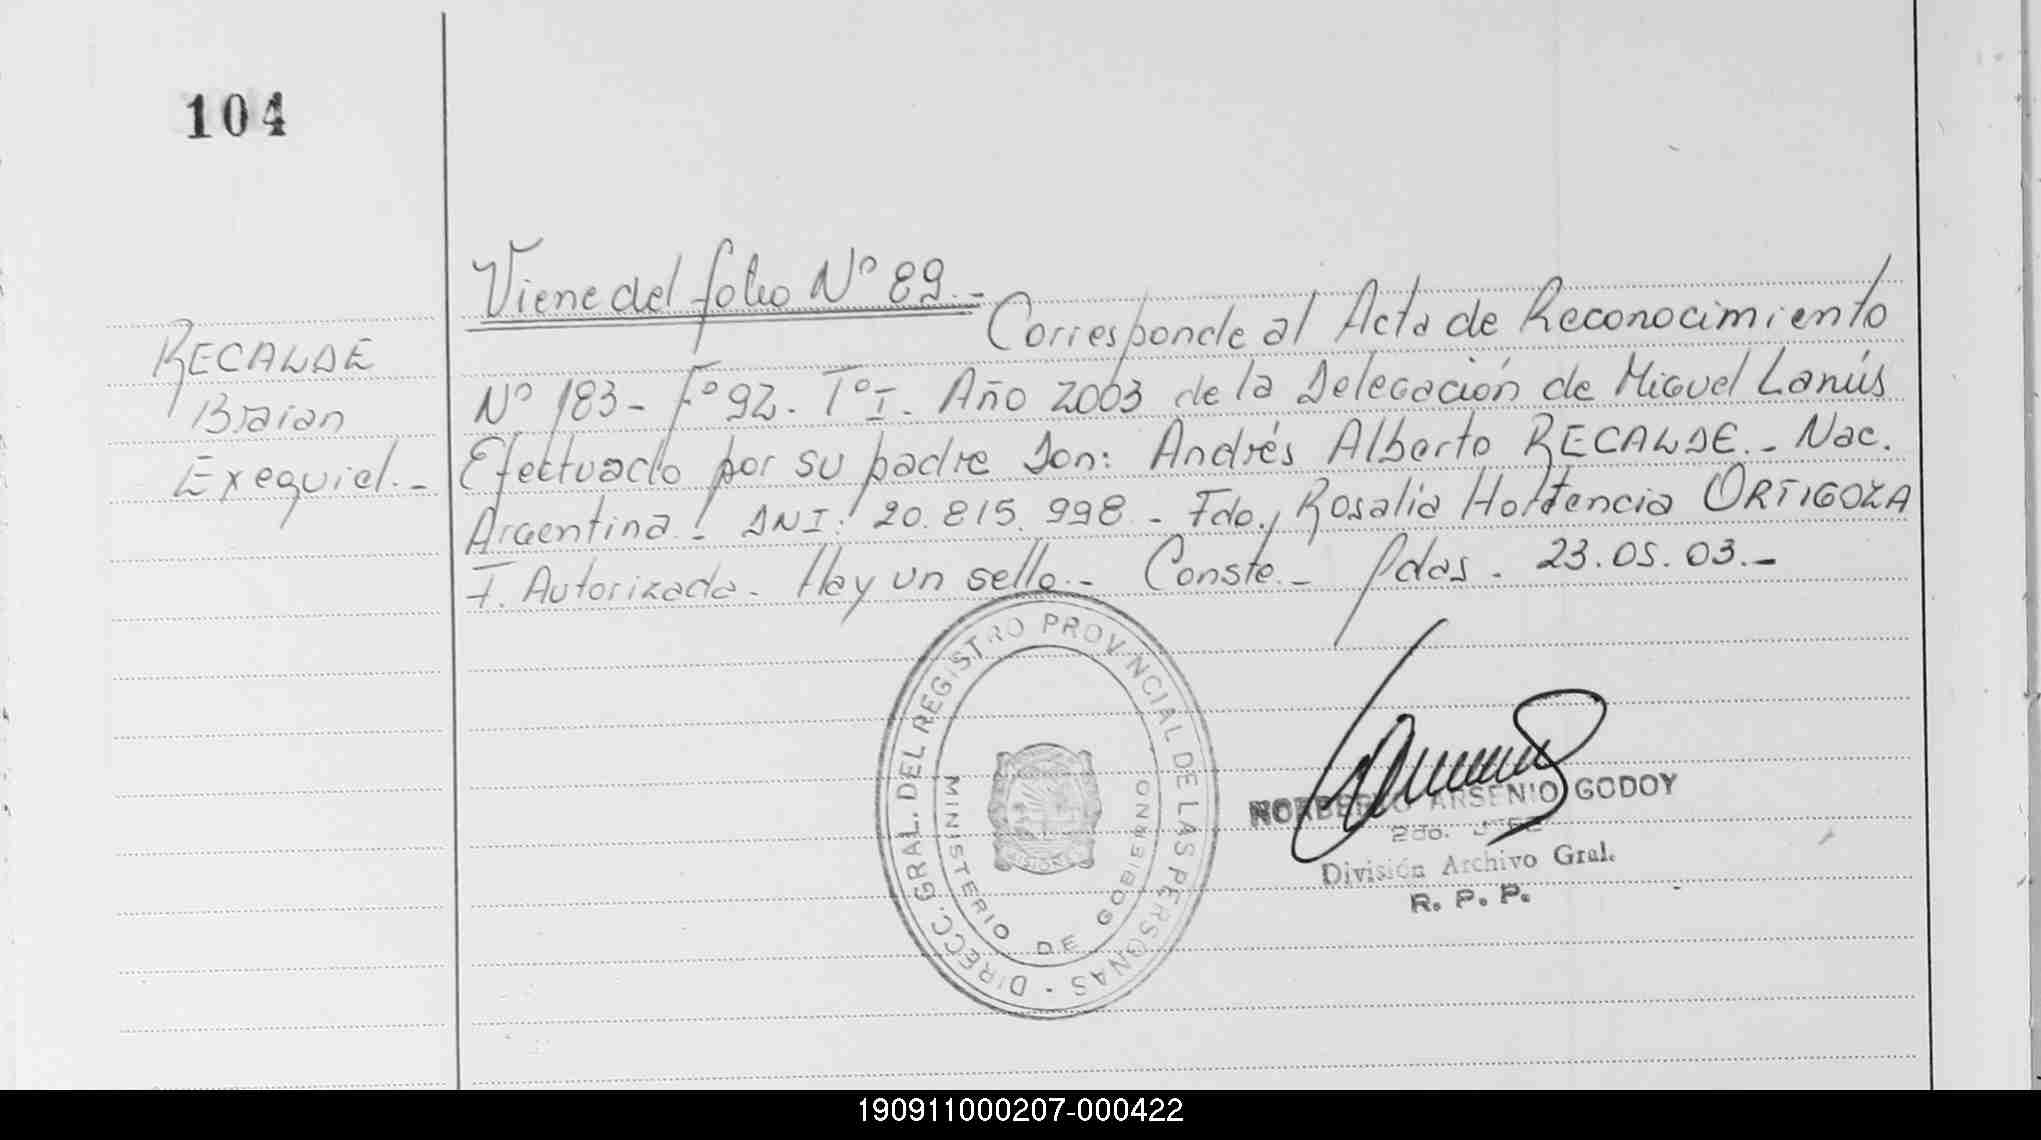 104
RECALDE
Braian
Exequiel.-
Viene del folio Nº 89.-
Corresponde al Acta de Reconocimiento
Nº 183- Fº 92. Tº I. Año 2003 de la Delegación de Miguel Lanús
Efectuado por su padre Don: Andrés Alberto RECALDE.- Nac.
Argentina.! DNI: 20.815.998.- Fdo., Rosalia Hortencia ORTIGOZA
F. Autorizada. Hay un sello.- Conste.- Pdas. 23.05.03.-
DIRECC. GRAL. DEL REGISTRO PROVINCIAL DE LAS PERSONAS ·
MINISTERIO DE GOBIERNO
MISIONES
NORBERTO ARSENIO GODOY
2do. JEFE
División Archivo Gral.
R. P. P.
190911000207-000422